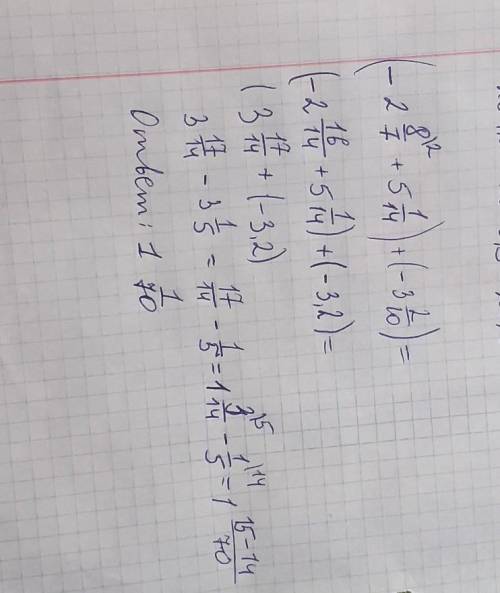 (-2 8/7 \2 + 5 1/14) + (-3 2/10) =
(-2 16/14 + 5 1/14) + (-3,2) =
(3 17/14 + (-3,2)
3 17/14 - 3 1/5 = 17/14 - 1/5 = 1 3/14 \5 - 1/5 \14 = 1 15-14/70
Ответ: 1 1/70